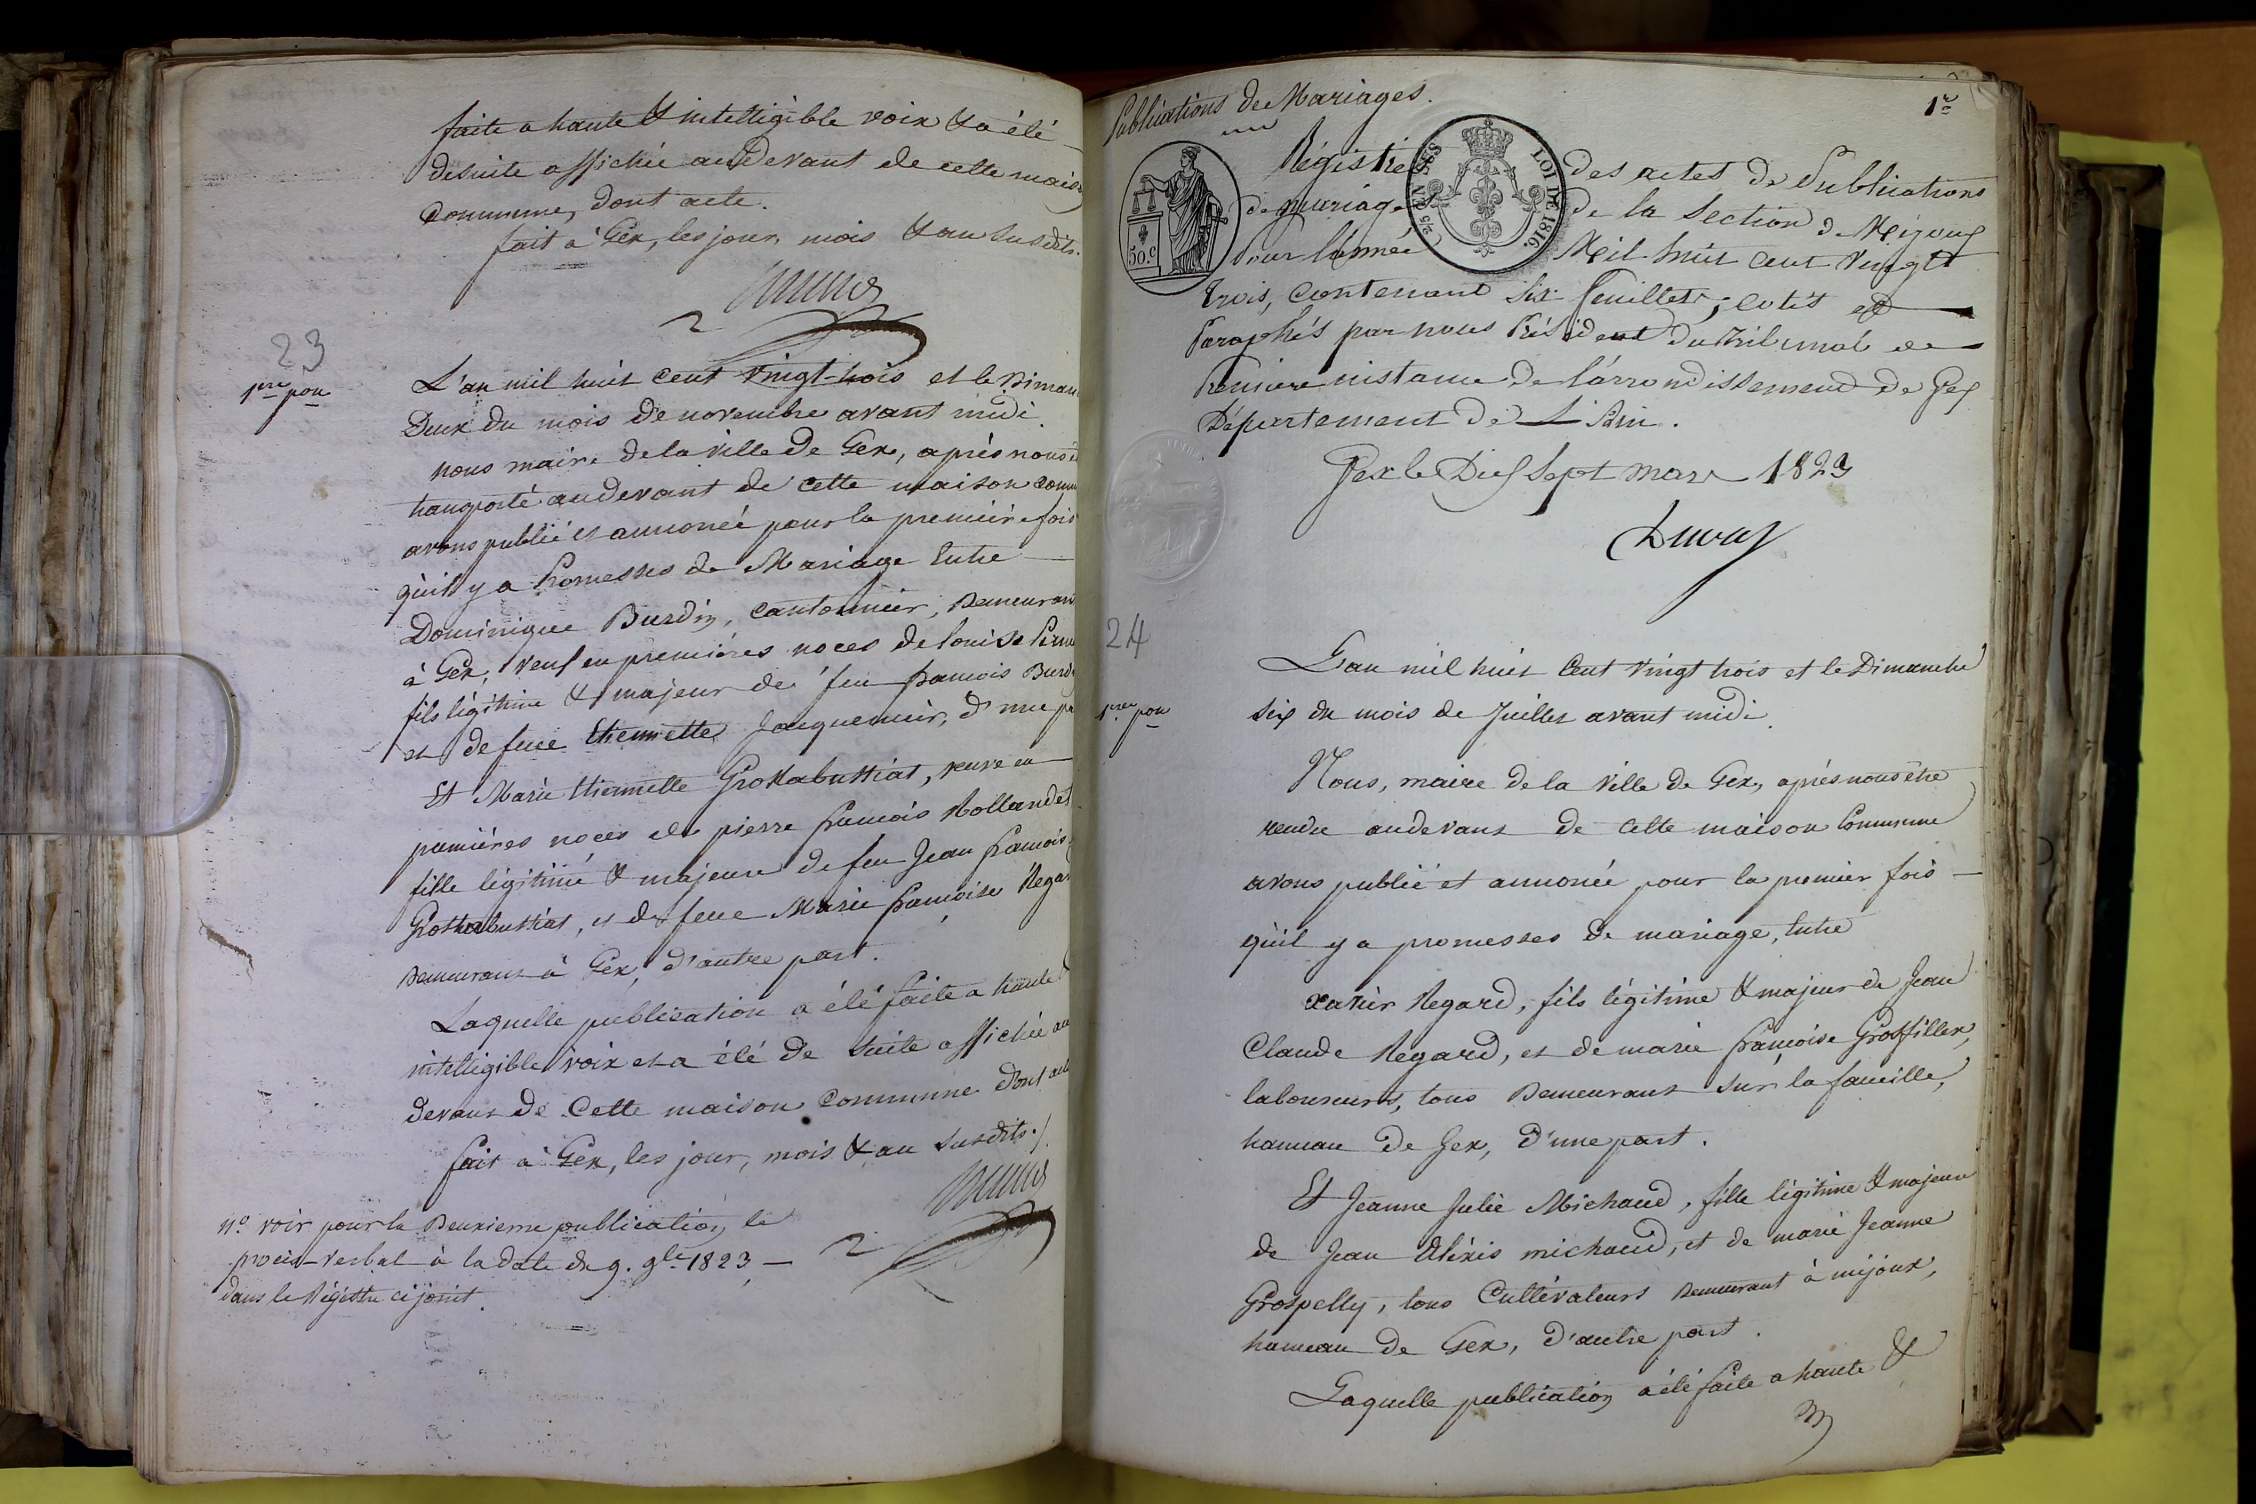 faite a haute & intelligible voix & a été
desuite affichée au Devant de cette maison
Commune, dont acte.
fait à Gex, les jour, mois & an susdits.
23
1re pon
L'an mil huit cent vingt-trois et le Diman
Deux du mois de novembre avant midi
nous maire de la ville de Gex, après nous ê
transporté audevant de cette maison comm
avons publié et annoncé pour la première fois
qu'il y a Promesses de Mariage Entre
Dominique Burdin, cantonnier, Demeurant
à Gex, veuf en premières noces de Louise
fils légitime & majeur de feu francois Burd
et de feue Etiennette Jacquemier, d'une pa
Et Marie Etiennette Groskabussiat, veuve en
premières noces de pierre francois Rollandet
fille légitime & majeure de feu Jean francois
Groskabussiat, et de feue Marie françoise Regar
Demeurant à Gex, d'autre part.
Laquelle publication a été faite a haute
intelligible voix et a été de suite affichée au
devant de Cette maison Commune dont acte
fait à Gex, les jour, mois & an susdits./.
No. voir pour la Deuxieme publication le
procès-verbal à la date du 9. 9bre 1823 —
dans le Régistre cijoint.
Publications de Mariages.
1r
50.c
25 CEN EN SUS
LOI DE 1816.
Régistre des actes de Publications
de mariages de la Section de Mijoux
Pour l'année Mil huit cent Vingt
trois, contenant six feuillets, cotés et
Paraphés par nous Président du Tribunal de
Premiere instance de l'arrondissement de Gex
Département de L'Ain.
Gex le Dix sept mars 1823
24
1re pon
L'an mil huit Cent vingt trois et le Dimanche
six du mois de Juillet avant midi
Nous, maire de la ville de Gex, après nous être
rendu audevant de cette maison Commune
avons publié et annoncé pour la premier fois —
qu'il y a promesses de mariage, Entre
xavier Regard, fils légitime & majeur de Jean
Claude Regard, et de marie françoise Grosfillex,
laboureurs, tous Demeurant sur la faucille,
hameau de Gex, d'une part.
Et Jeanne Julie Michaud, fille légitime & majeure
de Jean Alexis michaud, et de marie Jeanne
Grospelly, tous Cultivateurs Demeurant à mijoux,
hameau de Gex, d'autre part.
Laquelle publication a été faite a haute &